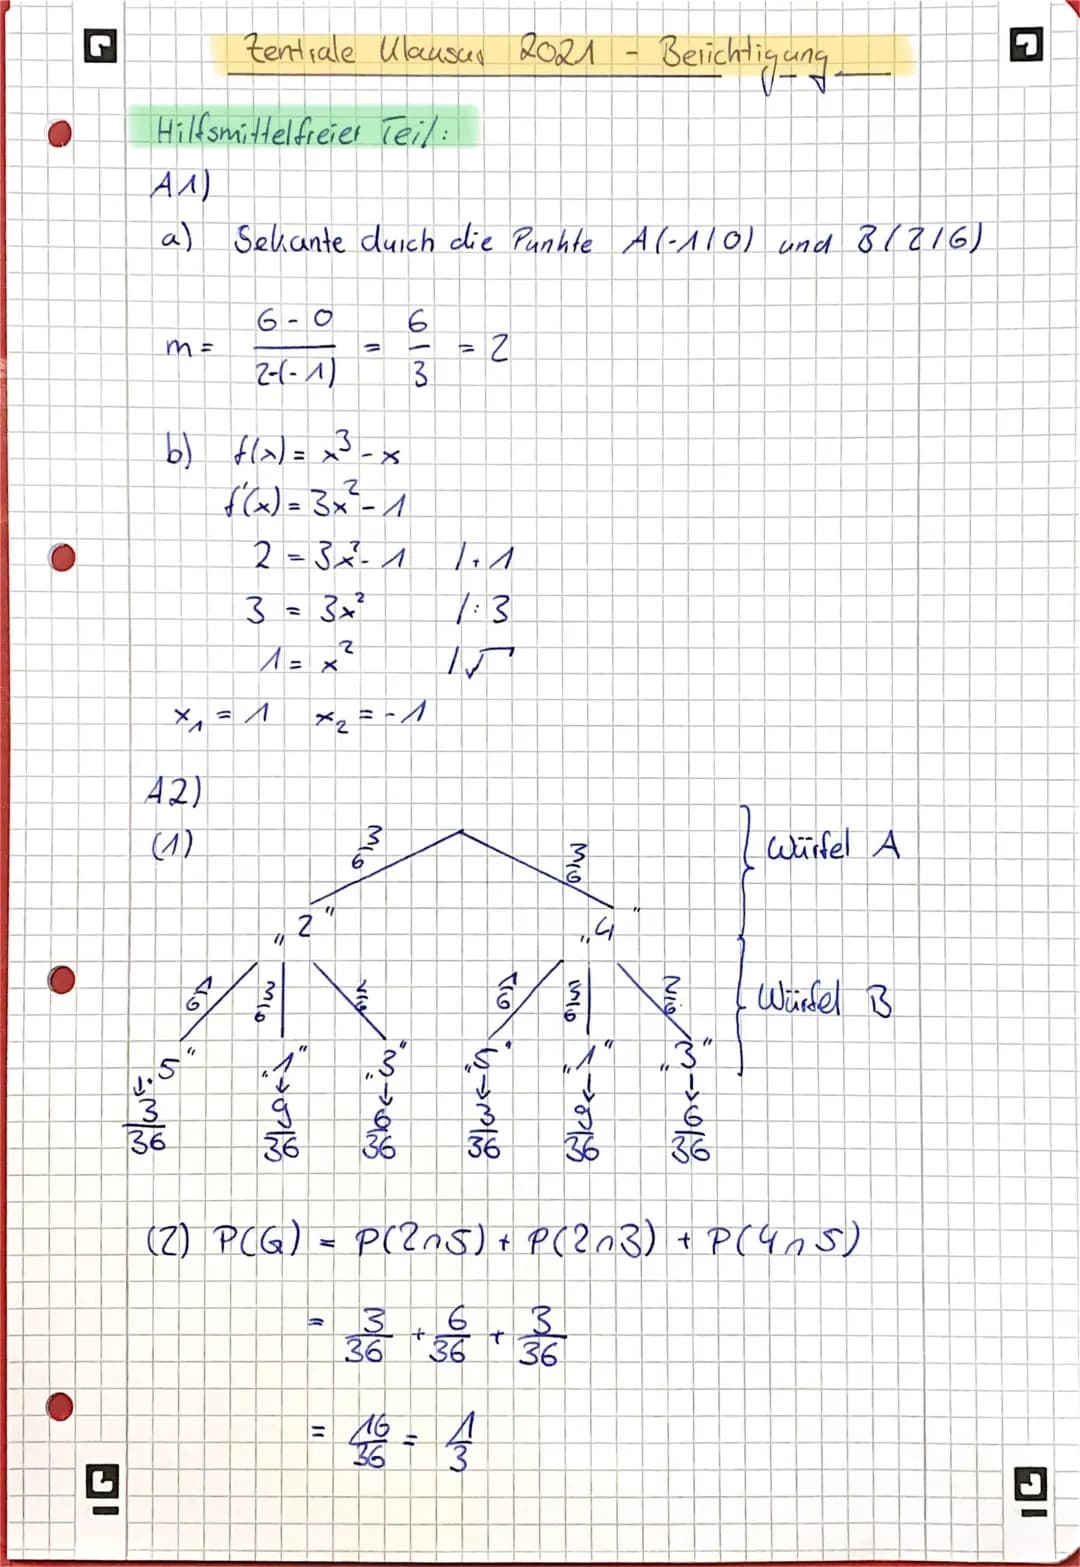 Zentrale Klausur 2021 - Berichtigung
Hilfsmittelfreier Teil:
A1)
a) Sekante durch die Punkte A(-1|0) und B(2|6)
m = (6 - 0)/(2-(-1)) = 6/3 = 2
b) f(x) = x³ - x
f'(x) = 3x² - 1
2 = 3x² - 1 |+1
3 = 3x² |:3
1 = x² |√
x₁ = 1 x₂ = -1
A2)
(1)
3/6 3/6 Würfel A
„2" „4"
1/6 3/6 2/6 1/6 3/6 2/6 Würfel B
„5" „1" „3" „5" „1" „3"
3/36 9/36 6/36 3/36 9/36 6/36
(2) P(G) = P(2∩5) + P(2∩3) + P(4∩5)
= 3/36 + 6/36 + 3/36
= 16/36 = 1/3